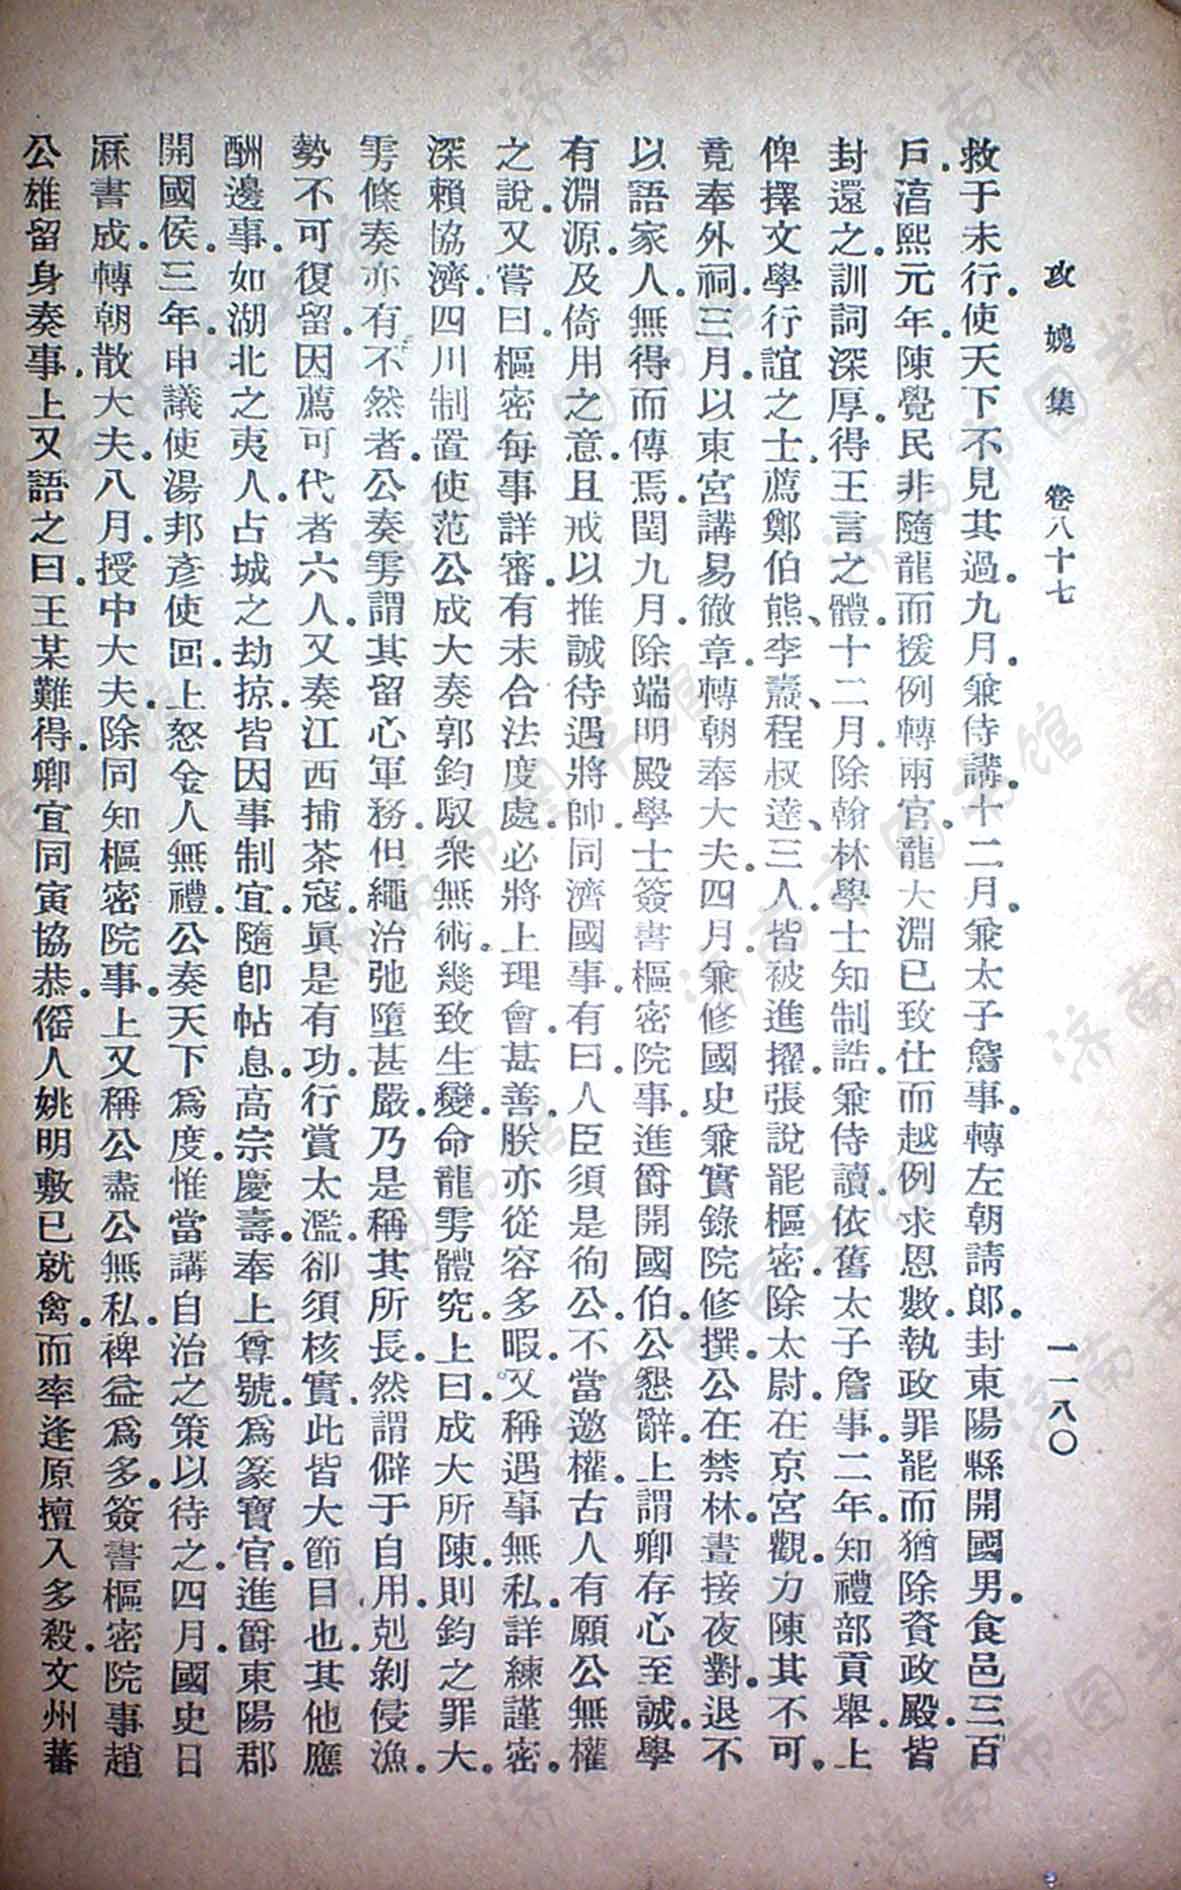 攻媿集 卷八十七 一一八〇
救于未行。使天下不見其過。九月。兼侍講。十二月。兼太子詹事。轉左朝請郎。封東陽縣開國男。食邑三百
戶。淳熙元年。陳覺民非隨龍而援例轉兩官。龍大淵已致仕而越例求恩數。執政罪罷而猶除資政殿。皆
封還之。訓詞深厚。得王言之體。十二月。除翰林學士知制誥。兼侍讀。依舊太子詹事。二年。知禮部貢舉。上
俾擇文學行誼之士。薦鄭伯熊、李燾、程叔達、三人。皆被進擢。張說罷樞密。除太尉。在京宮觀。力陳其不可。
竟奉外祠。三月。以東宮講易徹章。轉朝奉大夫。四月。兼修國史兼實錄院修撰。公在禁林。晝接夜對。退不
以語家人。無得而傳焉。閏九月。除端明殿學士簽書樞密院事。進爵開國伯。公懇辭。上謂卿存心至誠。學
有淵源。及倚用之意。且戒以推誠待遇將帥。同濟國事。有曰。人臣須是徇公。不當邀權。古人有願公無權
之說。又嘗曰。樞密每事詳審。有未合法度處。必將上理會。甚善。朕亦從容多暇。又稱遇事無私。詳練謹密。
深賴協濟。四川制置使范公成大奏郭鈞馭衆無術。幾致生變。命龍雱體究。上曰。成大所陳。則鈞之罪大。
雱條奏亦有不然者。公奏雱謂其留心軍務。但繩治弛墮甚嚴。乃是稱其所長。然謂僻于自用。剋剝侵漁。
勢不可復留。因薦可代者六人。又奏江西捕茶寇。眞是有功。行賞太濫。卻須核實。此皆大節目也。其他應
酬邊事。如湖北之夷人。占城之劫掠。皆因事制宜。隨卽帖息。高宗慶壽。奉上尊號。爲篆寶官。進爵東陽郡
開國侯。三年。申議使湯邦彥使回。上怒金人無禮。公奏天下爲度。惟當講自治之策以待之。四月。國史日
厤書成。轉朝散大夫。八月。授中大夫。除同知樞密院事。上又稱公盡公無私。裨益爲多。簽書樞密院事趙
公雄留身奏事。上又語之曰。王某難得。卿宜同寅協恭。傜人姚明敷已就禽。而率逢原擅入多殺。文州蕃